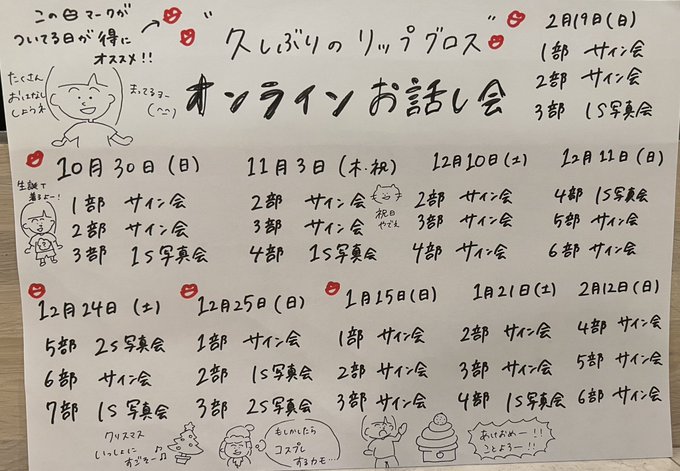 この マークが
ついてる日が 得に
オススメ!!
"久しぶりのリップグロス"
オンラインお話し会
たくさん
おはなし
しようネ
まってるヨー
(^-^)
2月19日(日)
1部 サイン会
2部 サイン会
3部 1S写真会
10月30日(日)
生誕で
着るよー!
1部 サイン会
2部 サイン会
3部 1S写真会
11月3日(木・祝)
2部 サイン会
3部 サイン会
4部 1S写真会
祝日
やでえ
12月10日(土)
2部 サイン会
3部 サイン会
4部 サイン会
12月11日(日)
4部 1S写真会
5部 サイン会
6部 サイン会
12月24日(土)
5部 2S写真会
6部 サイン会
7部 1S写真会
12月25日(日)
1部 サイン会
2部 1S写真会
3部 2S写真会
1月15日(日)
1部 サイン会
2部 サイン会
3部 サイン会
1月21日(土)
2部 サイン会
3部 サイン会
4部 1S写真会
2月12日(日)
4部 サイン会
5部 サイン会
6部 サイン会
クリスマス
いっしょに
すごそー♪
もしかしたら
コスプレ
するカモ…
あけおめー!!
ことよろー!!